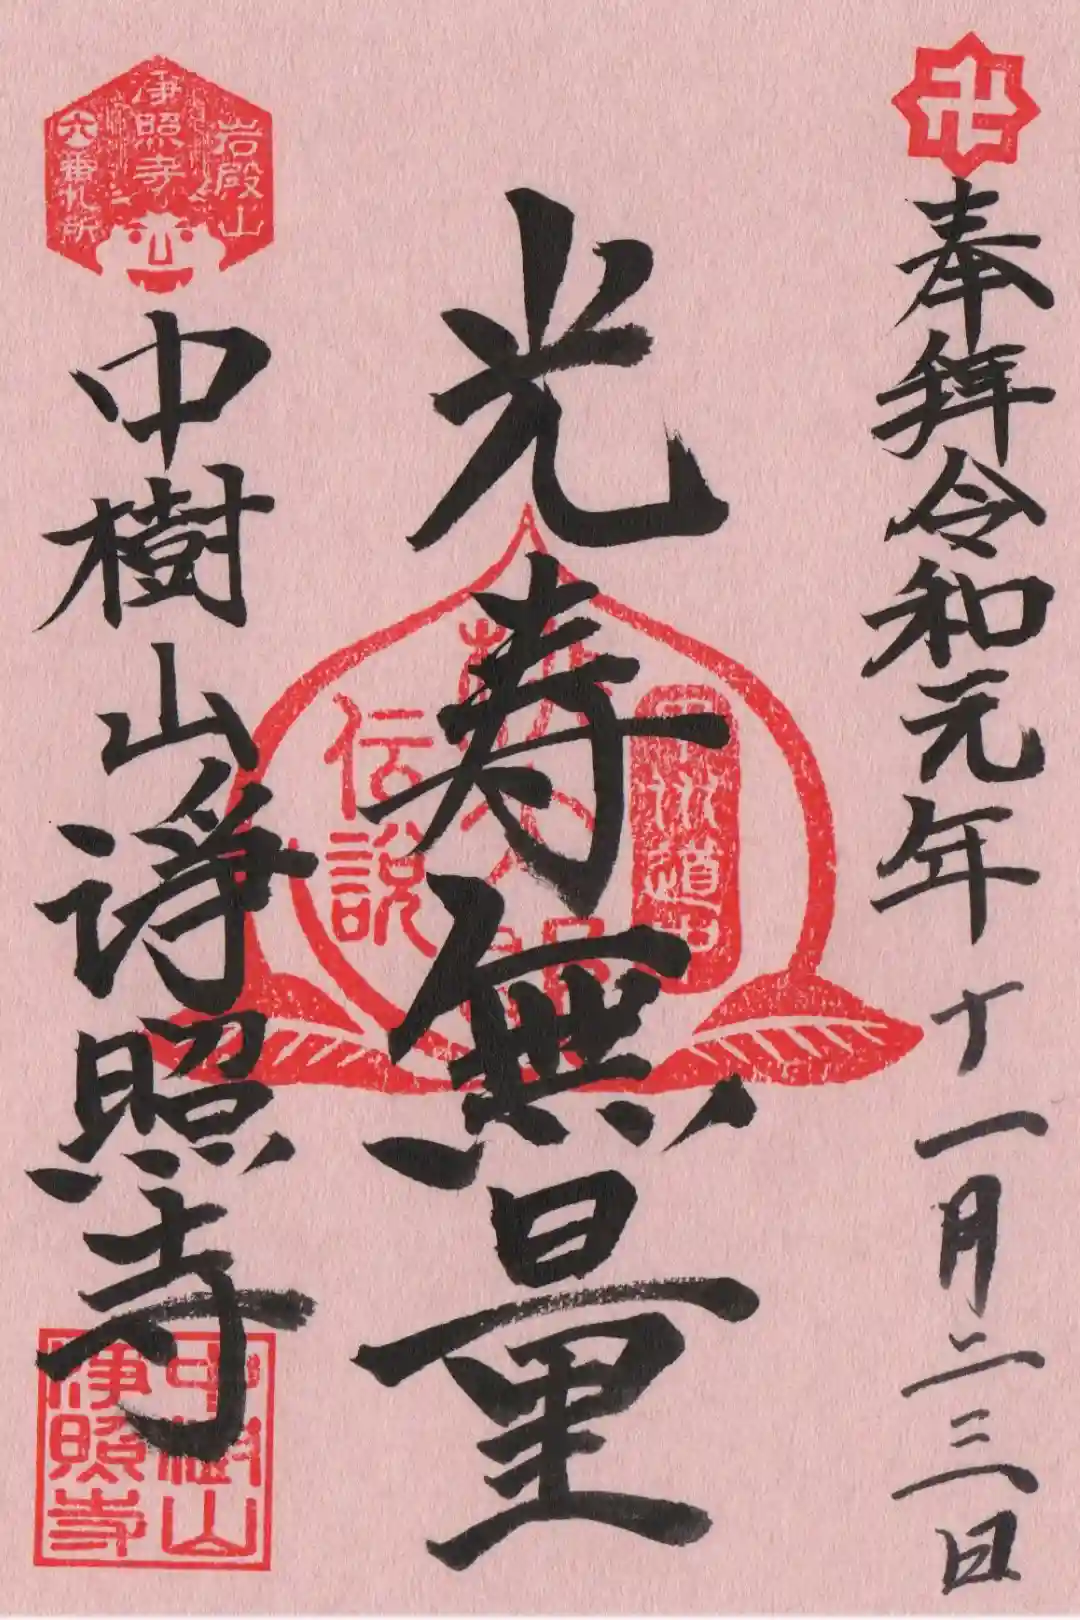 卍
奉拝令和元年十一月二三日
光寿無量
甲州道中
伝説
岩殿山
浄照寺
六番札所
中樹山浄照寺
中樹山
浄照寺